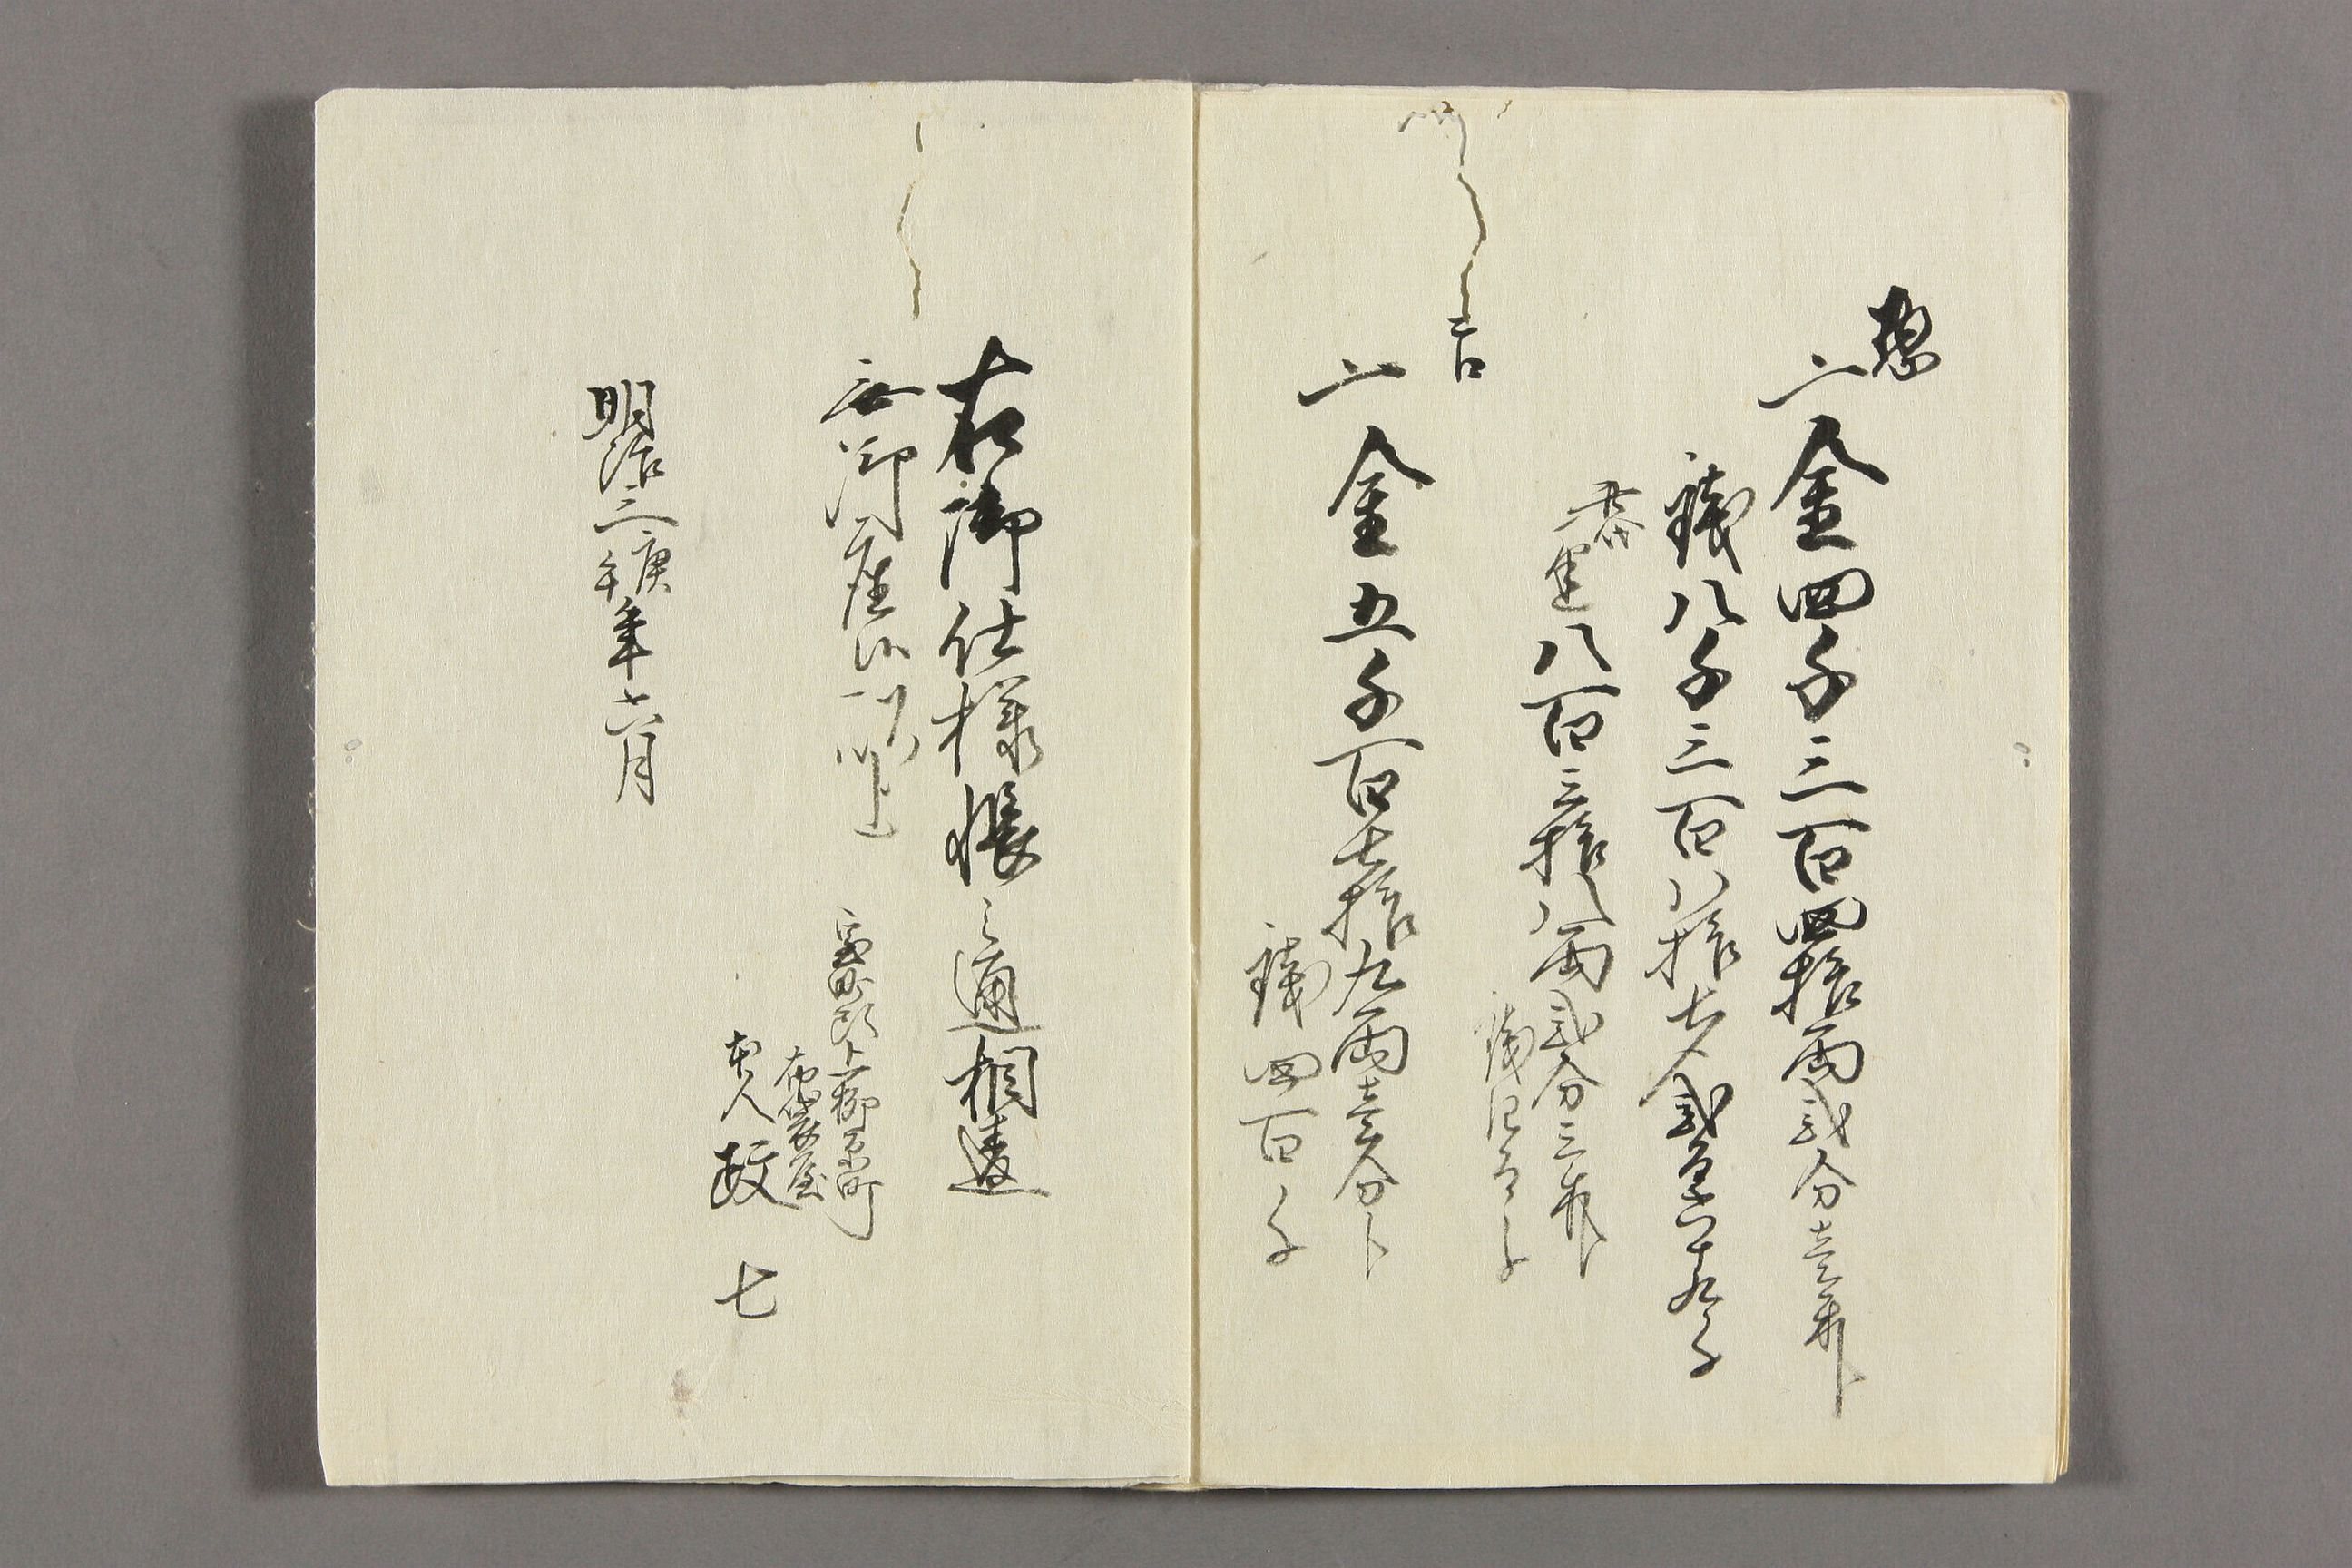 惣〆
金四千三百四拾両弐分壱朱ト
銭八千三百八拾七〆弐百六十九文
八百三拾八両弐分三朱ト
〆
金五千百七拾九両壱分ト
銭四百文
右御仕様帳之通相違
無御座候以上
室町頭上柳原町
布袋屋
本人政七
明治三庚午年六月